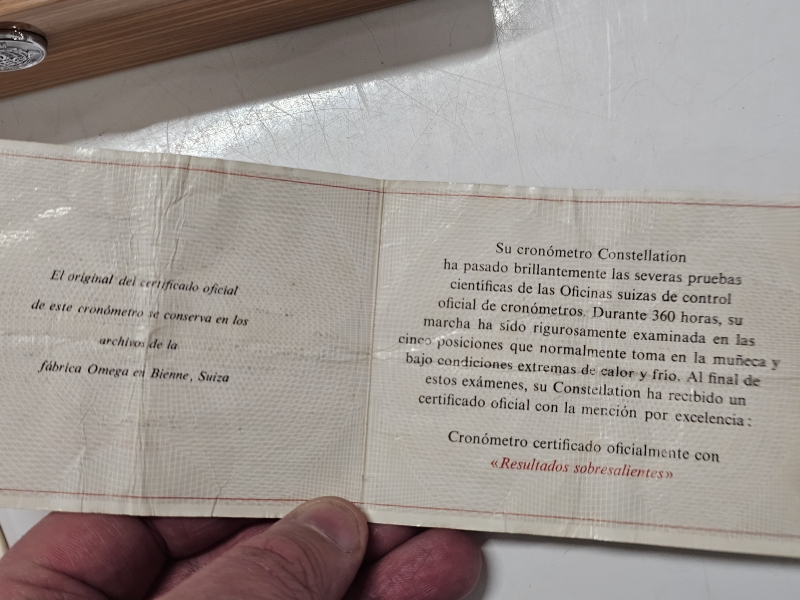 El original del certificado oficial
de este cronómetro se conserva en los
archivos de la
fábrica Omega en Bienne, Suiza
Su cronómetro Constellation
ha pasado brillantemente las severas pruebas
científicas de las Oficinas suizas de control
oficial de cronómetros. Durante 360 horas, su
marcha ha sido rigurosamente examinada en las
cinco posiciones que normalmente toma en la muñeca y
bajo condiciones extremas de calor y frío. Al final de
estos exámenes, su Constellation ha recibido un
certificado oficial con la mención por excelencia:
Cronómetro certificado oficialmente con
«Resultados sobresalientes»